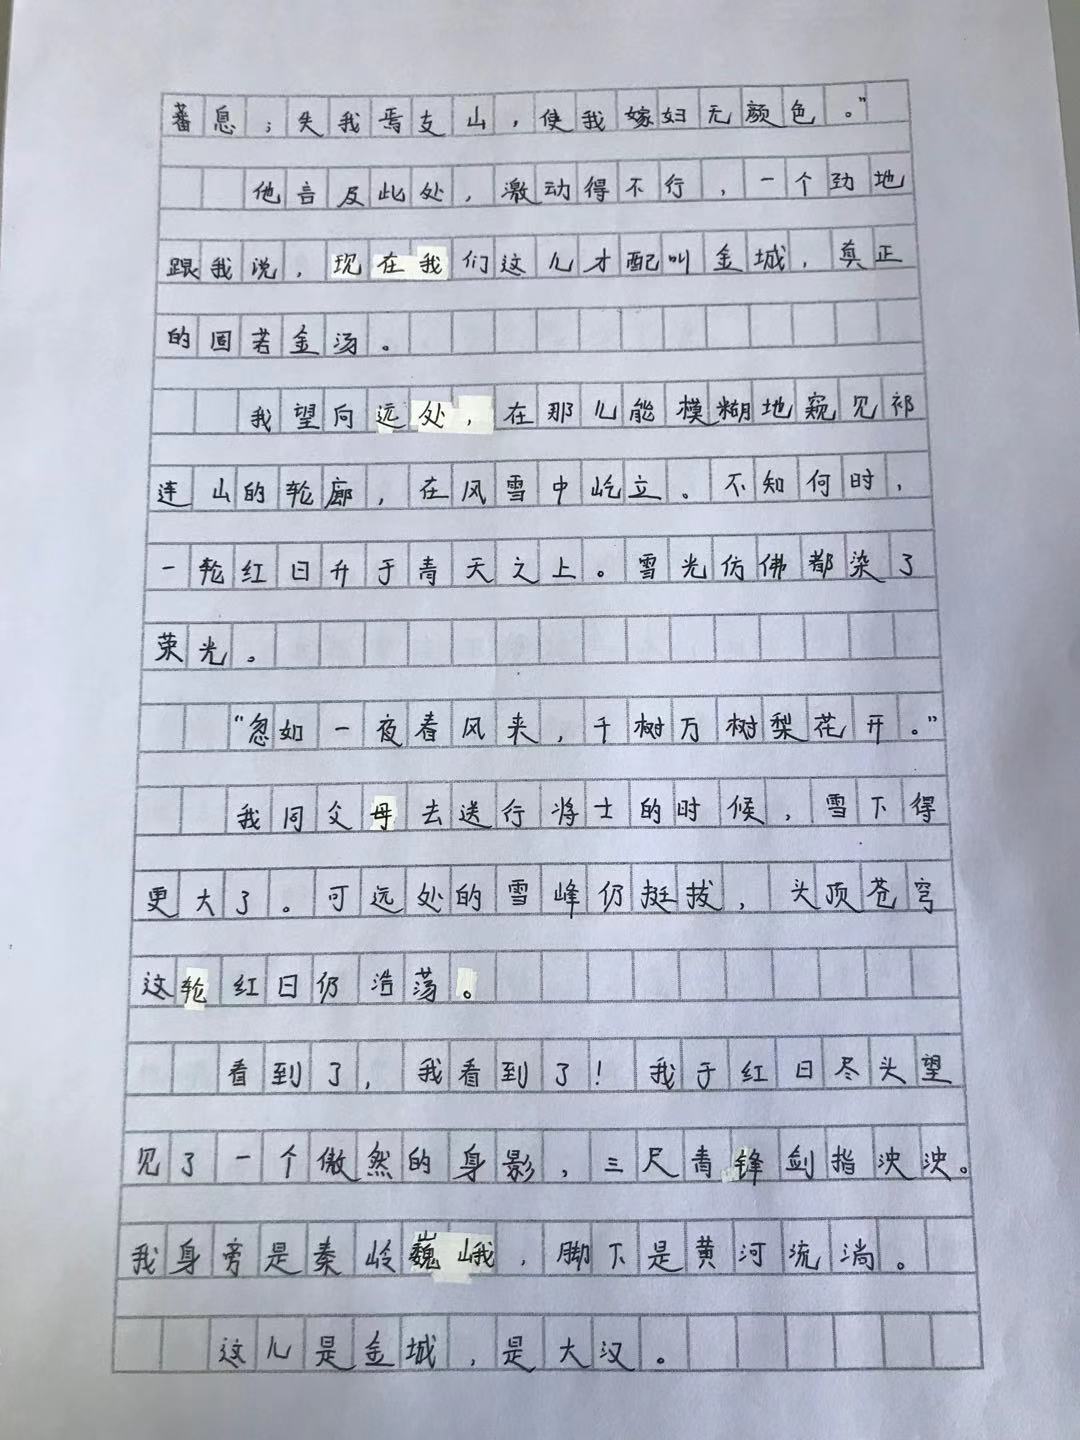 蕃息；失我焉支山，使我嫁妇无颜色。”
他言及此处，激动得不行，一个劲地
跟我说，现在我们这儿才配叫金城，真正
的固若金汤。
我望向远处，在那儿能模糊地窥见祁
连山的轮廓，在风雪中屹立。不知何时，
一轮红日升于青天之上。雪光仿佛都染了
荣光。
“忽如一夜春风来，千树万树梨花开。”
我同父母去送行将士的时候，雪下得
更大了。可远处的雪峰仍挺拔，头顶苍穹
这轮红日仍浩荡。
看到了，我看到了！我于红日尽头望
见了一个傲然的身影，三尺青锋剑指泱泱。
我身旁是秦岭巍峨，脚下是黄河流淌。
这儿是金城，是大汉。